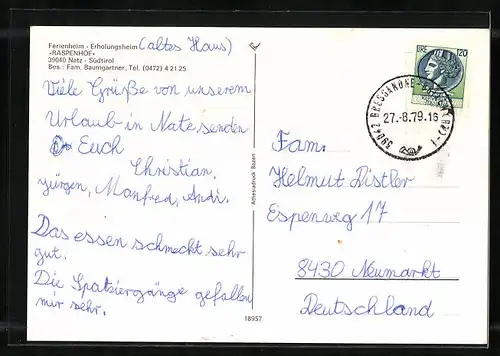 Ferienheim - Erholungsheim (altes Haus)
»RASPENHOF«
39040 Natz - Südtirol
Bes.: Fam. Baumgartner, Tel. (0472) 4 21 25
Viele Grüße von unserem
Urlaub in Nate senden
Euch
Christian,
Jürgen, Manfred, Andi.
Das essen schmeckt sehr
gut.
Die Spatsiergänge gefallen
mir sehr.
Athesiadruck Bozen
18957
LIRE 120
39042 BRESSANONE-
27.-8.79.16
Fam.
Helmut Distler
Espenweg 17
8430 Neumarkt
Deutschland